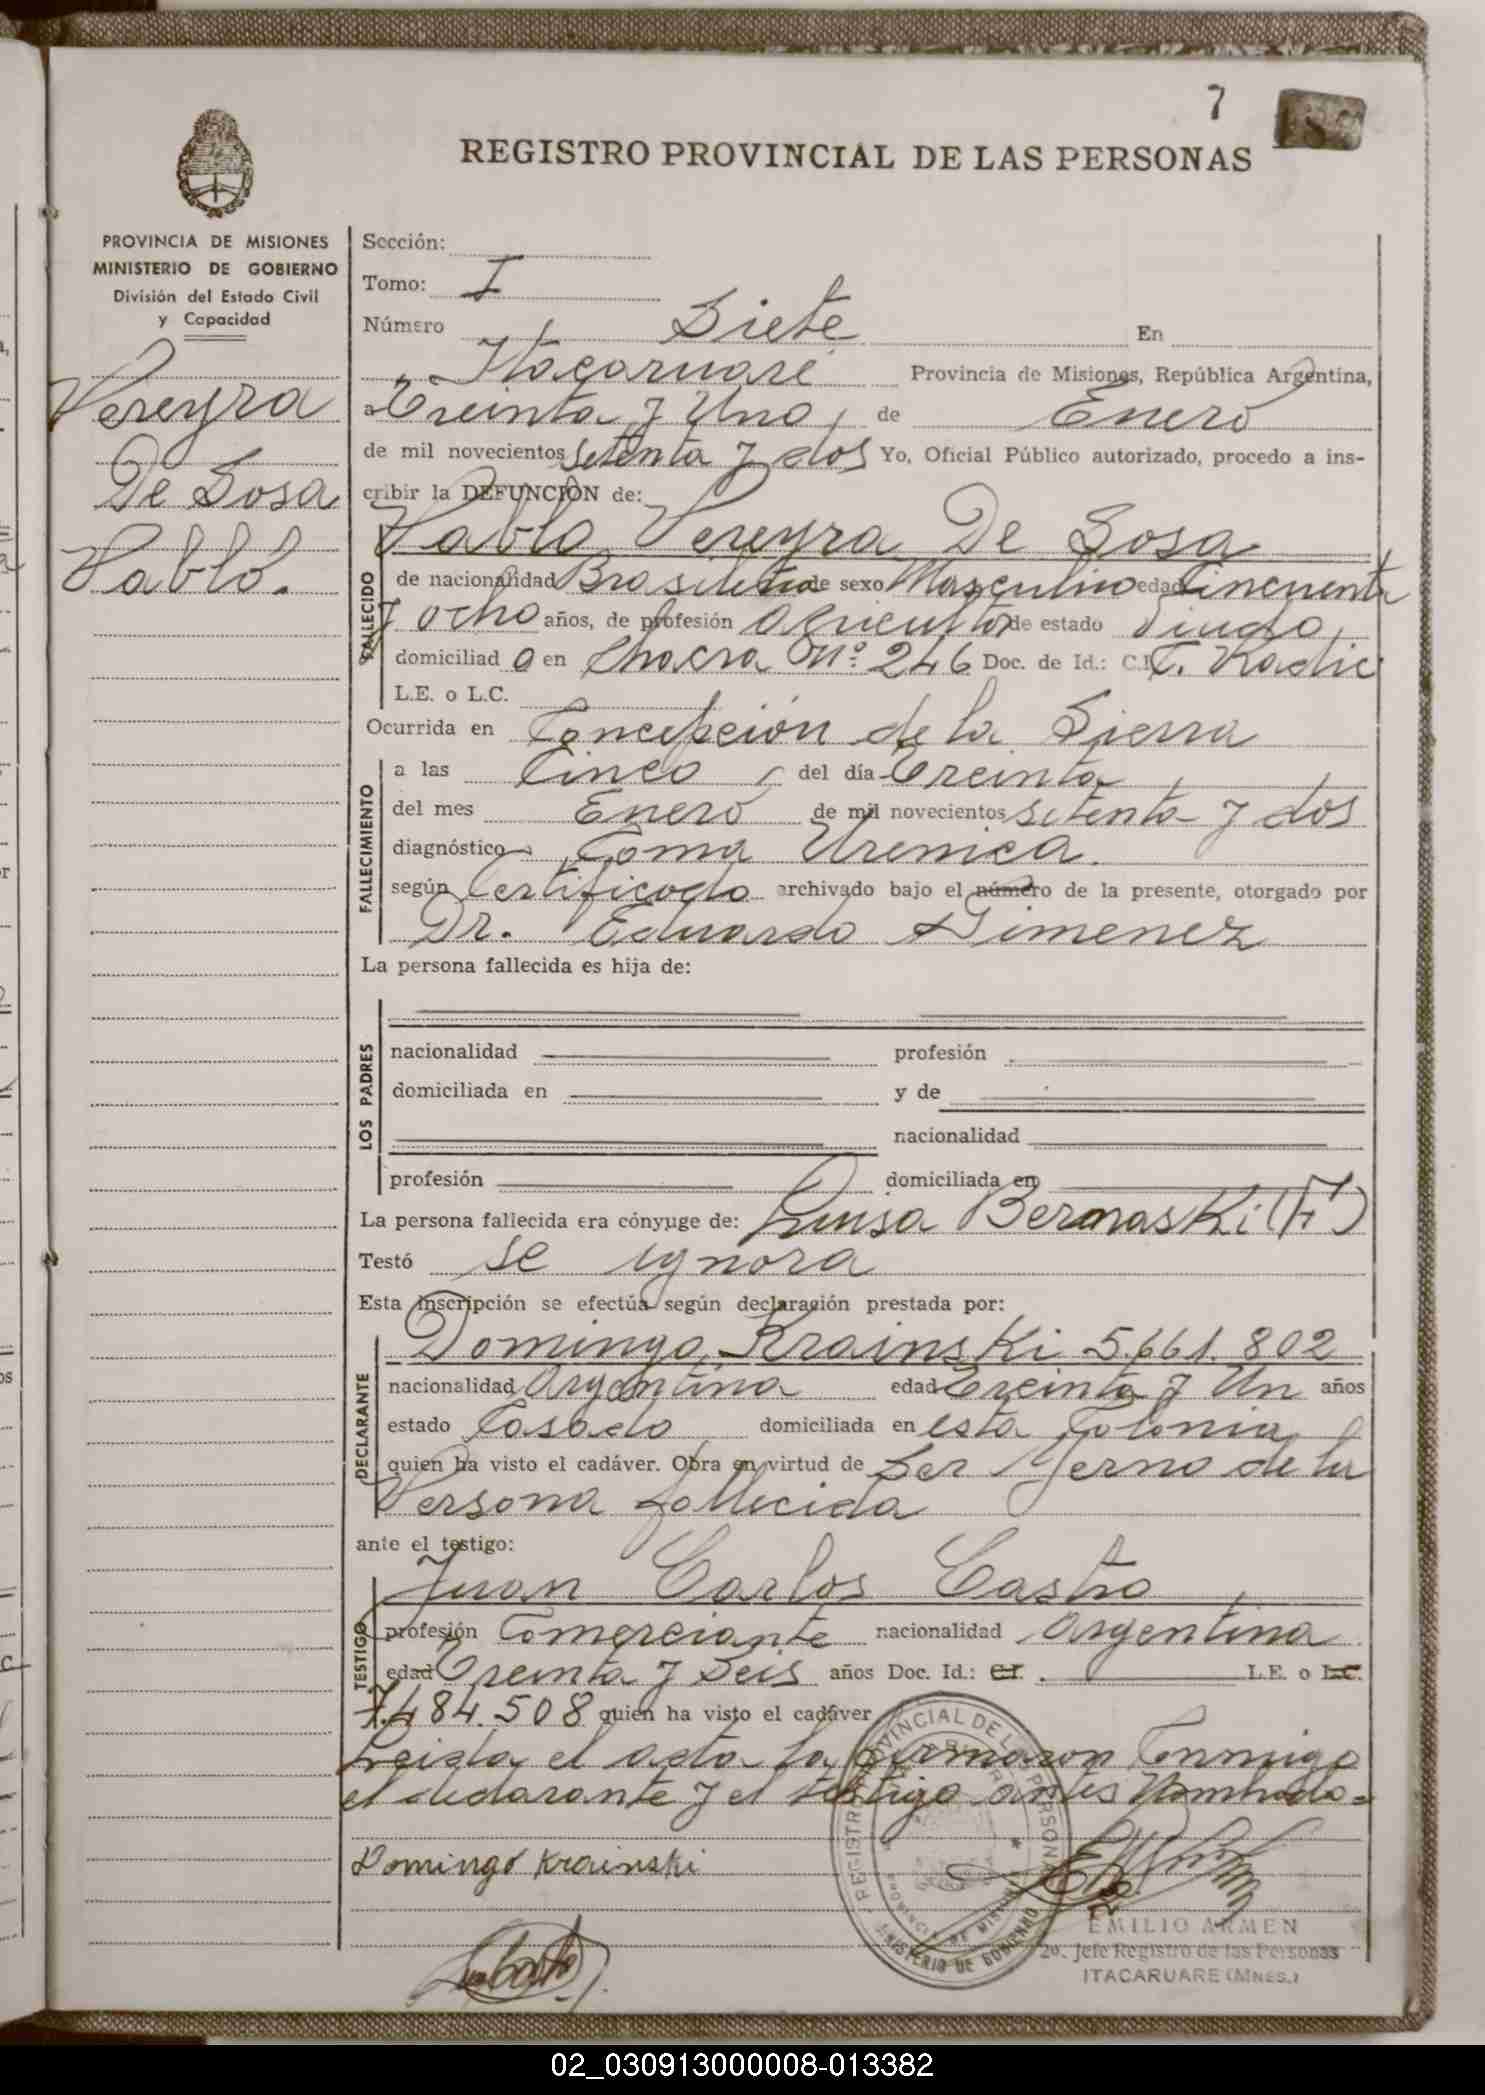 7
REGISTRO PROVINCIAL DE LAS PERSONAS
PROVINCIA DE MISIONES
MINISTERIO DE GOBIERNO
División del Estado Civil
y Capacidad
Pereyra
De Sosa
Pabló.
Sección:
Tomo: I
Número Siete En
Itacaruaré Provincia de Misiones, República Argentina,
a Treinta y Uno, de Enero
de mil novecientos setenta y dos Yo, Oficial Público autorizado, procedo a ins-
cribir la DEFUNCIÓN de:
Pablo Pereyra De Sosa
FALLECIDO
de nacionalidad Brasileña de sexo Masculino edad Cincuenta
y ocho años, de profesión agricultor de estado Viudo,
domiciliad o en Chacra Nº 246 Doc. de Id.: C.I. C. Radic
L.E. o L.C.
Ocurrida en Concepción de la Sierra
FALLECIMIENTO
a las Cinco, del día Treinta,
del mes Enero de mil novecientos setenta y dos
diagnóstico Coma Uremica.
según Certificado archivado bajo el número de la presente, otorgado por
Dr. Eduardo Gimenez
La persona fallecida es hija de:
LOS PADRES
nacionalidad profesión
domiciliada en y de
nacionalidad
profesión domiciliada en
La persona fallecida era cónyuge de: Luisa Bernaski (F)
Testó se ignora
Esta inscripción se efectúa según declaración prestada por:
DECLARANTE
Domingo Krainski 5.661.802
nacionalidad Argentina edad Treinta y Un años
estado Casado domiciliada en esta Colonia
quien ha visto el cadáver. Obra en virtud de Ser Yerno de la
Persona fallecida
ante el testigo:
Juan Carlos Castro,
TESTIGO
profesión Comerciante nacionalidad Argentina
edad Treinta y Seis años Doc. Id.: C.I. L.E. o L.C.
7.484.508 quien ha visto el cadáver
Leida el acta la firmaron Conmigo
el declarante y el testigo antes Nombrado=
Domingo Krainski
REGISTRO PROVINCIAL DE LAS PERSONAS
MINISTERIO DE GOBIERNO
PROVINCIA DE MISIONES
EMILIO ARMEN
2o. Jefe Registro de las Personas
ITACARUARE (MNES.)
02_030913000008-013382